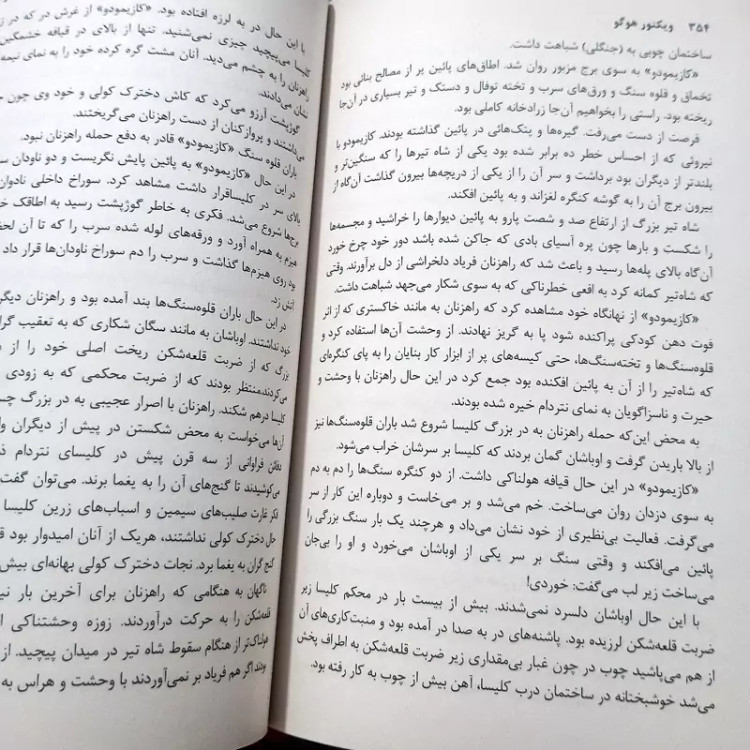 ۳۵۴ ویکتور هوگو
ساختمان چوبی به (جنگلی) شباهت داشت.
«کازیمودو» به سوی برج مزبور روان شد. اطاق‌های پائین پر از مصالح بنائی بود
تخماق و قلوه سنگ و ورق‌های سرب و تخته توفال و دستک و تیر بسیاری در آن‌جا
ریخته بود. راستی را بخواهیم آن‌جا زرادخانه کاملی بود.
فرصت از دست می‌رفت. گیره‌ها و پتک‌هائی در پائین گذاشته بودند. کازیمودو با
نیروئی که از احساس خطر ده برابر شده بود یکی از شاه تیرها را که سنگین‌تر و
بلندتر از دیگران بود برداشت و سر آن را از یکی از دریچه‌ها بیرون گذاشت آن‌گاه از
بیرون برج آن را به گوشه کنگره لغزاند و به پائین افکند.
شاه تیر بزرگ از ارتفاع صد و شصت پارو به پائین دیوارها را خراشید و مجسمه‌ها
را شکست و بارها چون پره آسیای بادی که جاکن شده باشد دور خود چرخ خورد
آن‌گاه بالای پله‌ها رسید و باعث شد که راهزنان فریاد دلخراشی از دل برآورند. وقتی
که شاه‌تیر کمانه کرد به افعی خطرناکی که به سوی شکار می‌جهد شباهت داشت.
«کازیمودو» از نهانگاه خود مشاهده کرد که راهزنان به مانند خاکستری که از اثر
فوت دهن کودکی پراکنده شود پا به گریز نهادند. از وحشت آن‌ها استفاده کرد و
قلوه‌سنگ‌ها و تخته‌سنگ‌ها، حتی کیسه‌های پر از ابزار کار بنایان را به پای کنگره‌ای
که شاه‌تیر را از آن به پائین افکنده بود جمع کرد در این حال راهزنان با وحشت و
حیرت و ناسزاگویان به نمای نتردام خیره شده بودند.
به محض این‌که حمله راهزنان به در بزرگ کلیسا شروع شد باران قلوه‌سنگ‌ها نیز
از بالا باریدن گرفت و اوباشان گمان بردند که کلیسا بر سرشان خراب می‌شود.
«کازیمودو» در این حال قیافه هولناکی داشت. از دو کنگره سنگ‌ها را دم به دم
به سوی دزدان روان می‌ساخت. خم می‌شد و بر می‌خاست و دوباره این کار از سر
می‌گرفت. فعالیت بی‌نظیری از خود نشان می‌داد و هرچند یک بار سنگ بزرگی را
پائین می‌افکند و وقتی سنگ بر سر یکی از اوباشان می‌خورد و او را بی‌جان
می‌ساخت زیر لب می‌گفت: خوردی!
با این حال اوباشان دلسرد نمی‌شدند. بیش از بیست بار در محکم کلیسا زیر
ضربت قلعه‌شکن لرزیده بود. پاشنه‌های در به صدا در آمده بود و منبت‌کاری‌های آن
از هم می‌پاشید چوب در چون غبار بی‌مقداری زیر ضربت قلعه‌شکن به اطراف پخش
می‌شد خوشبختانه در ساختمان درب کلیسا، آهن بیش از چوب به کار رفته بود.
با این حال در به لرزه افتاده بود. «کازیمودو» از غرش در که در
کلیسا می‌پیچید چیزی نمی‌شنید، تنها از بالای در قیافه خشمگین
راهزنان را به چشم می‌دید. آنان مشت گره کرده خود را به نمای نیمه
نشان می‌دادند.
گوژپشت آرزو می‌کرد که کاش دخترک کولی و خود وی چون
می‌داشتند و پروازکنان از دست راهزنان می‌گریختند.
باران قلوه سنگ «کازیمودو» قادر به دفع حمله راهزنان نبود.
در این حال «کازیمودو» به پائین پایش نگریست و دو ناودان
بالای سر در کلیسا قرار داشت مشاهده کرد. سوراخ داخلی ناودان
برج‌ها شروع می‌شد. فکری به خاطر گوژپشت رسید به اطاقک
هیزم به همراه آورد و ورقه‌های لوله شده سرب را که تا آن
بود روی هیزم‌ها گذاشت و سرب را دم سوراخ ناودان‌ها قرار داد
آتش زد.
در این حال باران قلوه‌سنگ‌ها بند آمده بود و راهزنان
خود نداشتند. اوباشان به مانند سگان شکاری که به تعقیب
بزرگ که از ضربت قلعه‌شکن ریخت اصلی خود را از
می‌کردند منتظر بودند که از ضربت محکمی که به زودی
کلیسا درهم شکند. راهزنان با اصرار عجیبی به در بزرگ
آن‌ها می‌خواست به محض شکستن در پیش از دیگران
دفائن فراوانی از سه قرن پیش در کلیسای نتردام
می‌کوشیدند تا گنج‌های آن را به یغما برند. می‌توان گفت
فکر غارت صلیب‌های سیمین و اسباب‌های زرین کلیسا
حال دخترک کولی نداشتند، هریک از آنان امیدوار بود
گنج گران به یغما برد. نجات دخترک کولی بهانه‌ای بیش
ناگهان به هنگامی که راهزنان برای آخرین بار
قلعه‌شکن را به حرکت درآوردند. زوزه وحشتناکی
هولناک‌تر از هنگام سقوط شاه تیر در میدان پیچید. از
بودند اگر هم فریاد بر نمی‌آوردند با وحشت و هراس به